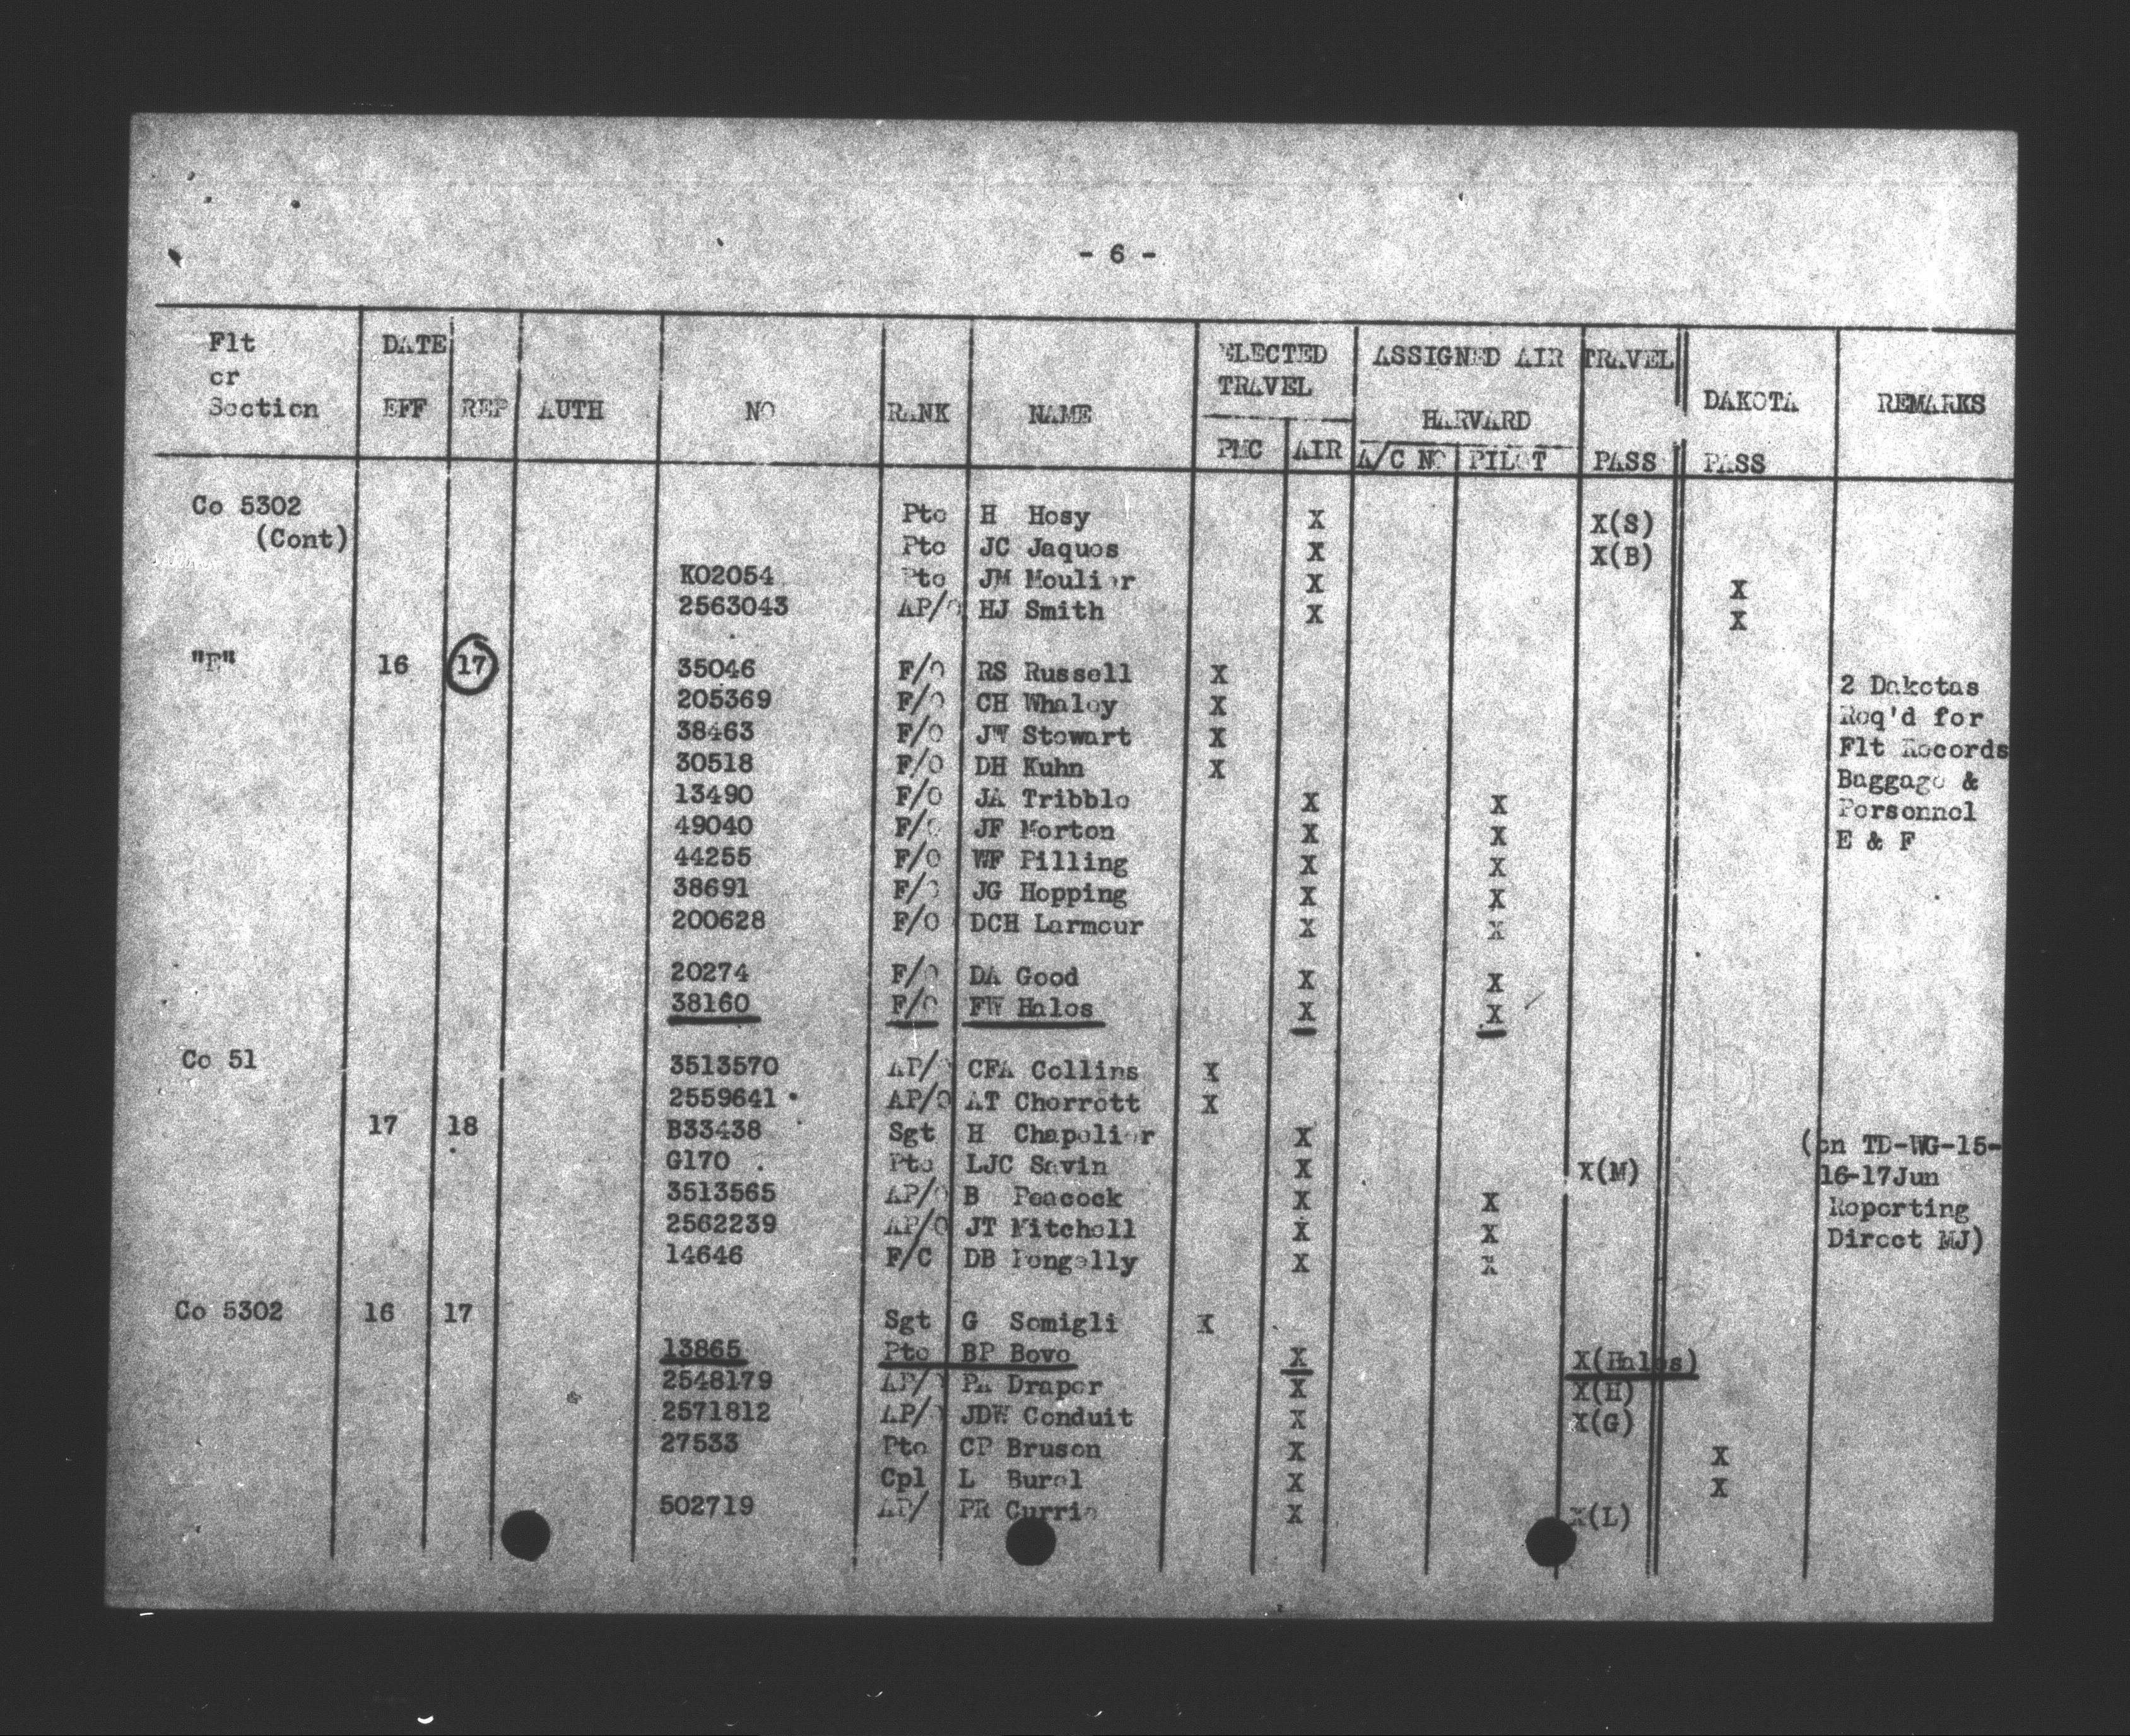 - 6 -
Flt or Section DATE EFF REP AUTH NO RANK NAME ELECTED TRAVEL PMC AIR ASSIGNED AIR TRAVEL HARVARD A/C NO PILOT PASS DAKOTA PASS REMARKS
Co 5302 Pte H Hesy X X(S)
(Cont) Pte JC Jaques X X(B)
KO2054 Pte JM Moulier X X
2563043 AP/O HJ Smith X X
16 17 35046 F/O RS Russell X
205369 F/O CH Whaley X 2 Dakotas
38463 F/O JW Stewart X Req'd for
30518 F/O DH Kuhn X Flt Records
13490 F/O JA Tribble X X Baggage &
49040 F/O JF Morton X X Personnel
44255 F/O WF Pilling X X E & F
38691 F/O JG Hopping X X
200628 F/O DCH Larmour X X
20274 F/O DA Good X X
38160 F/O FW Hales X X
Co 51 3513570 AP/O CFA Collins X
2559641 AP/O AT Cherrett X
17 18 B33438 Sgt H Chapelier X (on TD-WG-15-
G170 Pte LJC Savin X X(M) 16-17Jun
3513565 AP/O B Peacock X X Reporting
2562239 AP/O JT Mitchell X X Direct MJ)
14646 F/O DB Pengelly X X
Co 5302 16 17 Sgt G Semigli X
13865 Pte BP Bovo X X(Hales)
2548179 AP/O PA Draper X X(H)
2571812 AP/O JDW Conduit X X(G)
27533 Pte CP Bruson X X
Cpl L Burel X X
502719 AP/ PR Currie X X(L)